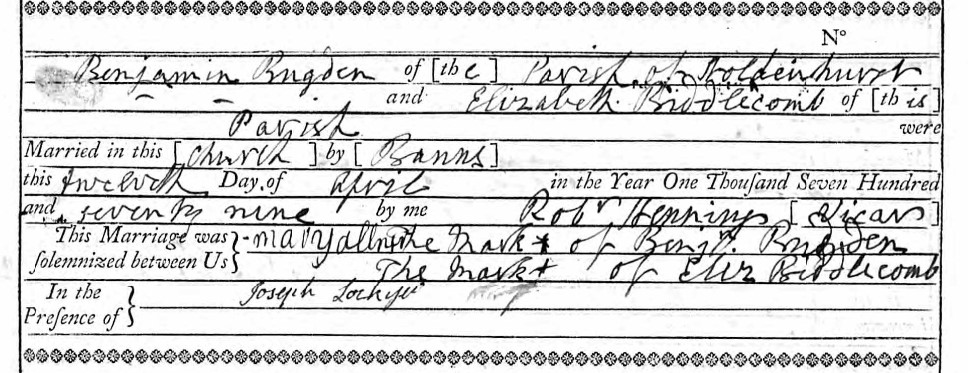 N°
Benjamin Bugden of [the] Parish of Holdenhurst
and Elizabeth Biddlecomb of [this]
Parish were
Married in this [Church] by [Banns]
this twelveth Day of April in the Year One Thouſand Seven Hundred
and seventy nine by me Robt Henning [Vicar]
This Marriage was ſolemnized between Us } The Mark + of Benjn. Bugden
The Mark + of Eliz Biddlecomb
In the Preſence of } Joseph Lockyer